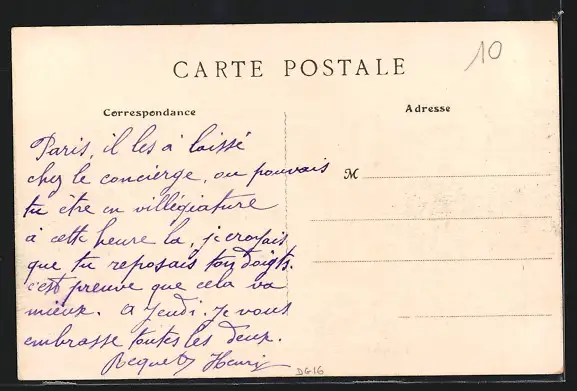 10
CARTE POSTALE
Correspondance
Adresse
M
Paris, il les à laissé
chez le concierge, ou pouvais
tu être en villégiature
à cette heure la, je croyais
que tu reposais ton doigts.
c'est preuve que cela va
mieux. a Jeudi. Je vous
embrasse toutes les deux.
Henri
DG16